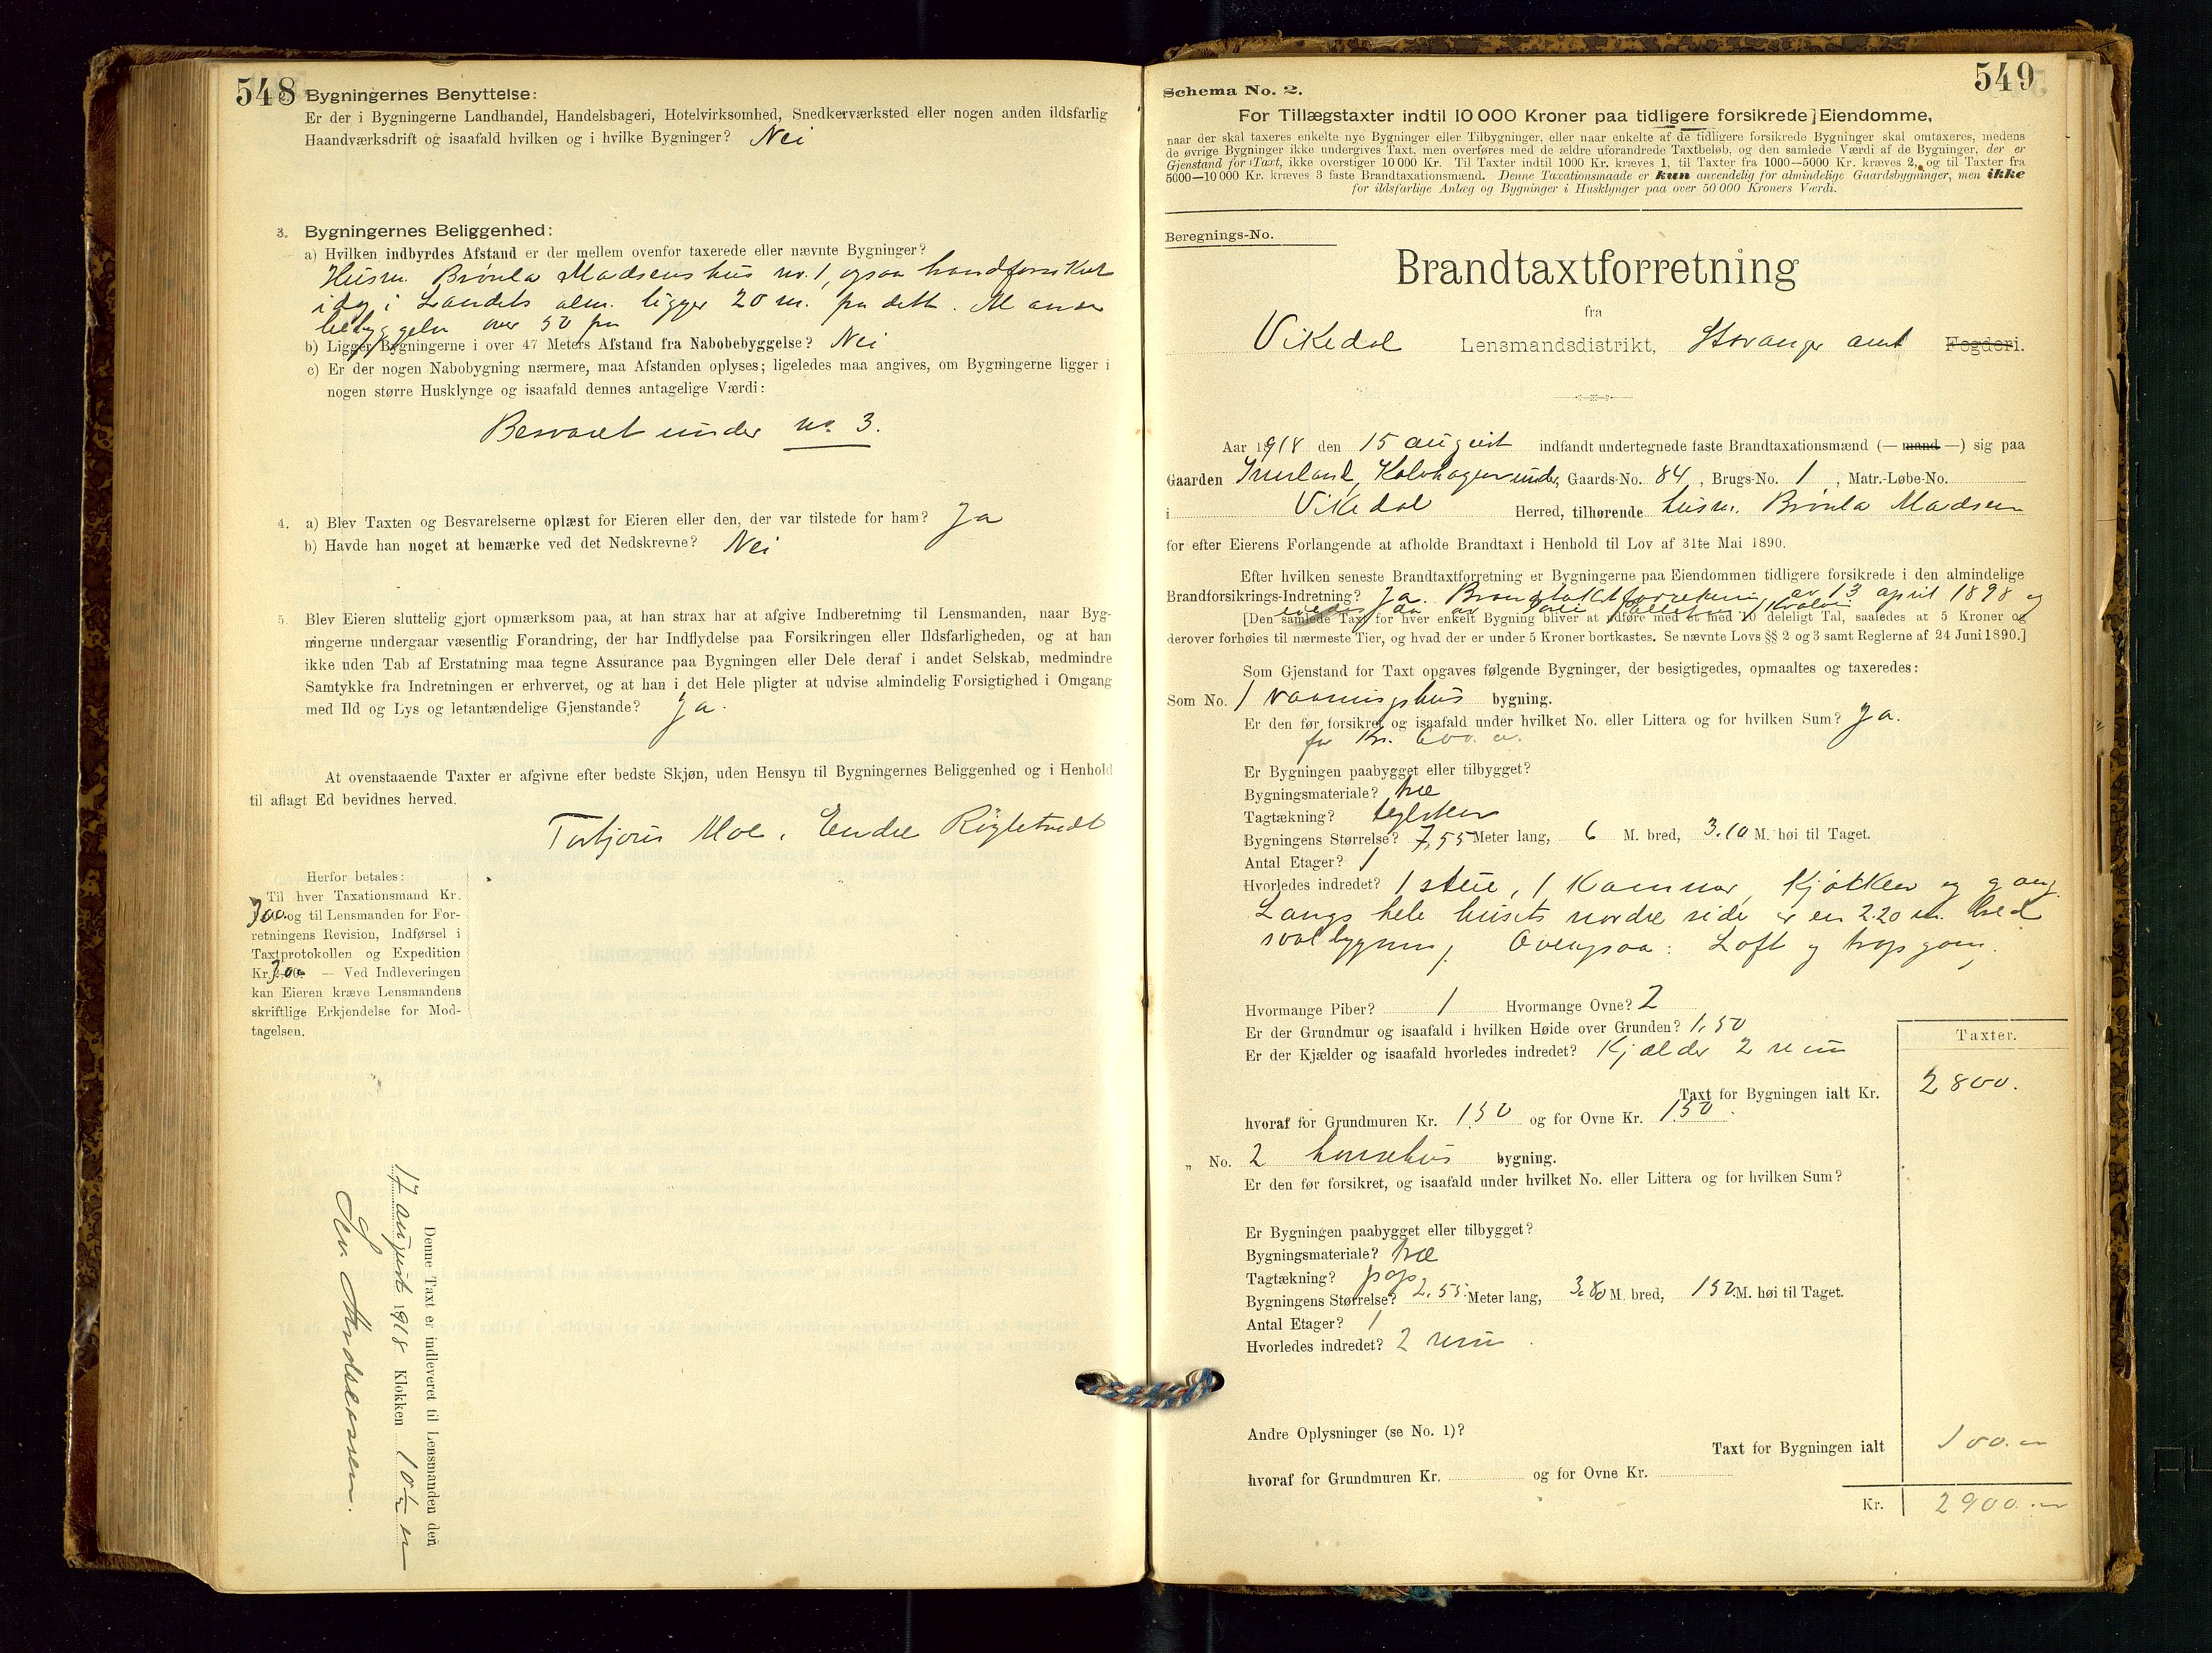 548
Bygningernes Benyttelse:
Er der i Bygningerne Landhandel, Handelsbageri, Hotelvirksomhed, Snedkerværksted eller nogen anden ildsfarlig
Haandværksdrift og isaafald hvilken og i hvilke Bygninger? Nei
3. Bygningernes Beliggenhed:
a) Hvilken indbyrdes Afstand er der mellem ovenfor taxerede eller nævnte Bygninger?
Husm. Madsens hus no. 1, ogsaa
idag i Landets alm. ligger 20 m. fra dette. Al anden
bebyggelse over 50 fra
b) Ligger Bygningerne i over 47 Meters Afstand fra Nabobebyggelse? Nei
c) Er der nogen Nabobygning nærmere, maa Afstanden oplyses; ligeledes maa angives, om Bygningerne ligger i
nogen større Husklynge og isaafald dennes antagelige Værdi:
Besvaret under no 3.
4. a) Blev Taxten og Besvarelserne oplæst for Eieren eller den, der var tilstede for ham? Ja
b) Havde han noget at bemærke ved det Nedskrevne? Nei
5. Blev Eieren sluttelig gjort opmærksom paa, at han strax har at afgive Indberetning til Lensmanden, naar Byg-
ningerne undergaar væsentlig Forandring, der har Indflydelse paa Forsikringen eller Ildsfarligheden, og at han
ikke uden Tab af Erstatning maa tegne Assurance paa Bygningen eller Dele deraf i andet Selskab, medmindre
Samtykke fra Indretningen er erhvervet, og at han i det Hele pligter at udvise almindelig Forsigtighed i Omgang
med Ild og Lys og letantændelige Gjenstande? Ja.
At ovenstaaende Taxter er afgivne efter bedste Skjøn, uden Hensyn til Bygningernes Beliggenhed og i Henhold
til aflagt Ed bevidnes herved.
Torbjørn Moe. Endre
Herfor betales:
Til hver Taxationsmand Kr.
3,00 og til Lensmanden for For-
retningens Revision, Indførsel i
Taxtprotokollen og Expedition
Kr. 3,00 — Ved Indleveringen
kan Eieren kræve Lensmandens
skriftlige Erkjendelse for Mod-
tagelsen.
Denne Taxt er indleveret til Lensmanden den
17 august 1918 Klokken 10
549
Schema No. 2.
For Tillægstaxter indtil 10 000 Kroner paa tidligere forsikrede Eiendomme,
naar der skal taxeres enkelte nye Bygninger eller Tilbygninger, eller naar enkelte af de tidligere forsikrede Bygninger skal omtaxeres, medens
de øvrige Bygninger ikke undergives Taxt, men overføres med de ældre uforandrede Taxtbeløb, og den samlede Værdi af de Bygninger, der er
Gjenstand for Taxt, ikke overstiger 10 000 Kr. Til Taxter indtil 1000 Kr. kræves 1, til Taxter fra 1000—5000 Kr. kræves 2, og til Taxter fra
5000—10 000 Kr. kræves 3 faste Brandtaxationsmænd. Denne Taxationsmaade er kun anvendelig for almindelige Gaardsbygninger, men ikke
for ildsfarlige Anlæg og Bygninger i Husklynger paa over 50 000 Kroners Værdi.
Beregnings-No.
Brandtaxtforretning
fra
Vikedal Lensmandsdistrikt, Stavanger amt Fogderi.
Aar 1918 den 15 august indfandt undertegnede faste Brandtaxationsmænd (— mand —) sig paa
Gaarden under Gaards-No. 84, Brugs-No. 1, Matr.-Løbe-No.
i Vikedal Herred, tilhørende husm. Madsen
for efter Eierens Forlangende at afholde Brandtaxt i Henhold til Lov af 31te Mai 1890.
Efter hvilken seneste Brandtaxtforretning er Bygningerne paa Eiendommen tidligere forsikrede i den almindelige
Brandforsikrings-Indretning? Ja. Brandtaktforretning av 13 april 1898 og
[Den samlede Taxt for hver enkelt Bygning bliver at udføre med et med 10 deleligt Tal, saaledes at 5 Kroner og
derover forhøies til nærmeste Tier, og hvad der er under 5 Kroner bortkastes. Se nævnte Lovs §§ 2 og 3 samt Reglerne af 24 Juni 1890.]
Som Gjenstand for Taxt opgaves følgende Bygninger, der besigtigedes, opmaaltes og taxeredes:
Som No. 1 vaaningshus bygning.
Er den før forsikret og isaafald under hvilket No. eller Littera og for hvilken Sum? Ja.
for Kr. 600.
Er Bygningen paabygget eller tilbygget?
Bygningsmateriale? træ
Tagtækning? teglsten
Bygningens Størrelse? 7,55 Meter lang, 6 M. bred, 3.10 M. høi til Taget.
Antal Etager? 1
Hvorledes indredet? 1 stue, 1 Kammer, Kjøkken og gang.
Langs hele husets nordre side er en 2.20 m. bred
svalbygning. Ovenpaa: Loft og trapgang.
Hvormange Piber? 1 Hvormange Ovne? 2
Er der Grundmur og isaafald i hvilken Høide over Grunden? 1,50
Er der Kjælder og isaafald hvorledes indredet? Kjælder 2 rum
Taxter.
Taxt for Bygningen ialt Kr. 2800.
hvoraf for Grundmuren Kr. 150 og for Ovne Kr. 150.
" No. 2 bygning.
Er den før forsikret, og isaafald under hvilket No. eller Littera og for hvilken Sum?
Er Bygningen paabygget eller tilbygget?
Bygningsmateriale? træ
Tagtækning? pap
Bygningens Størrelse? 2,55 Meter lang, 3.80 M. bred, 150 M. høi til Taget.
Antal Etager? 1
Hvorledes indredet? 2 rum.
Andre Oplysninger (se No. 1)?
Taxt for Bygningen ialt 100.
hvoraf for Grundmuren Kr. og for Ovne Kr.
Kr. 2900.